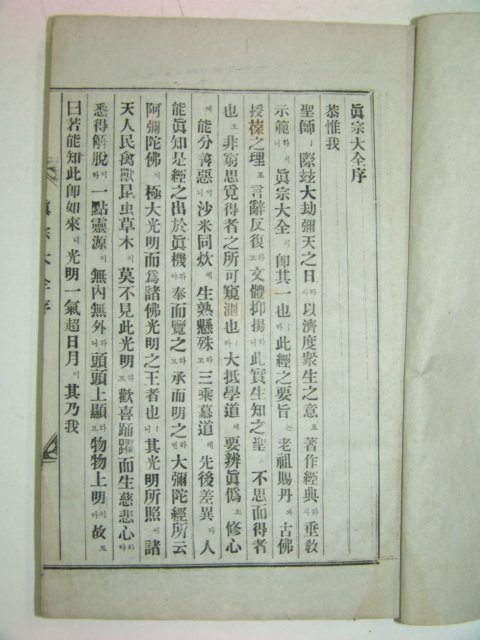 眞宗大全序
恭惟我
聖師ㅣ際玆大劫彌天之日하사以濟度衆生之意로著作經典하사垂敎
示範하시니眞宗大全이卽其一也라此經之要旨는老祖賜丹과古佛
授之理로言辭反復하고文體抑揚하니此實生知之聖의不思而得者
也오非窮思覓得者之所可窺測也라大抵學道에要辨眞僞오修心
에能分善惡이니沙米同炊에生熟懸殊하고三乘慕道에先後差異라人
能眞知是經之出於眞機하야奉而覽之하고承而明之하면大彌陀經所云
阿彌陀佛이極大光明而爲諸佛光明之王者也니其光明所照에諸
天人民禽獸昆虫草木이莫不見此光明하고歡喜踊躍而生慈悲心하야
悉得解脫하나니一點靈源이無內無外하니頭頭上顯하고物物上明이라故로
曰若能知此면卽如來니光明一氣超日月이其乃我
眞宗大全序